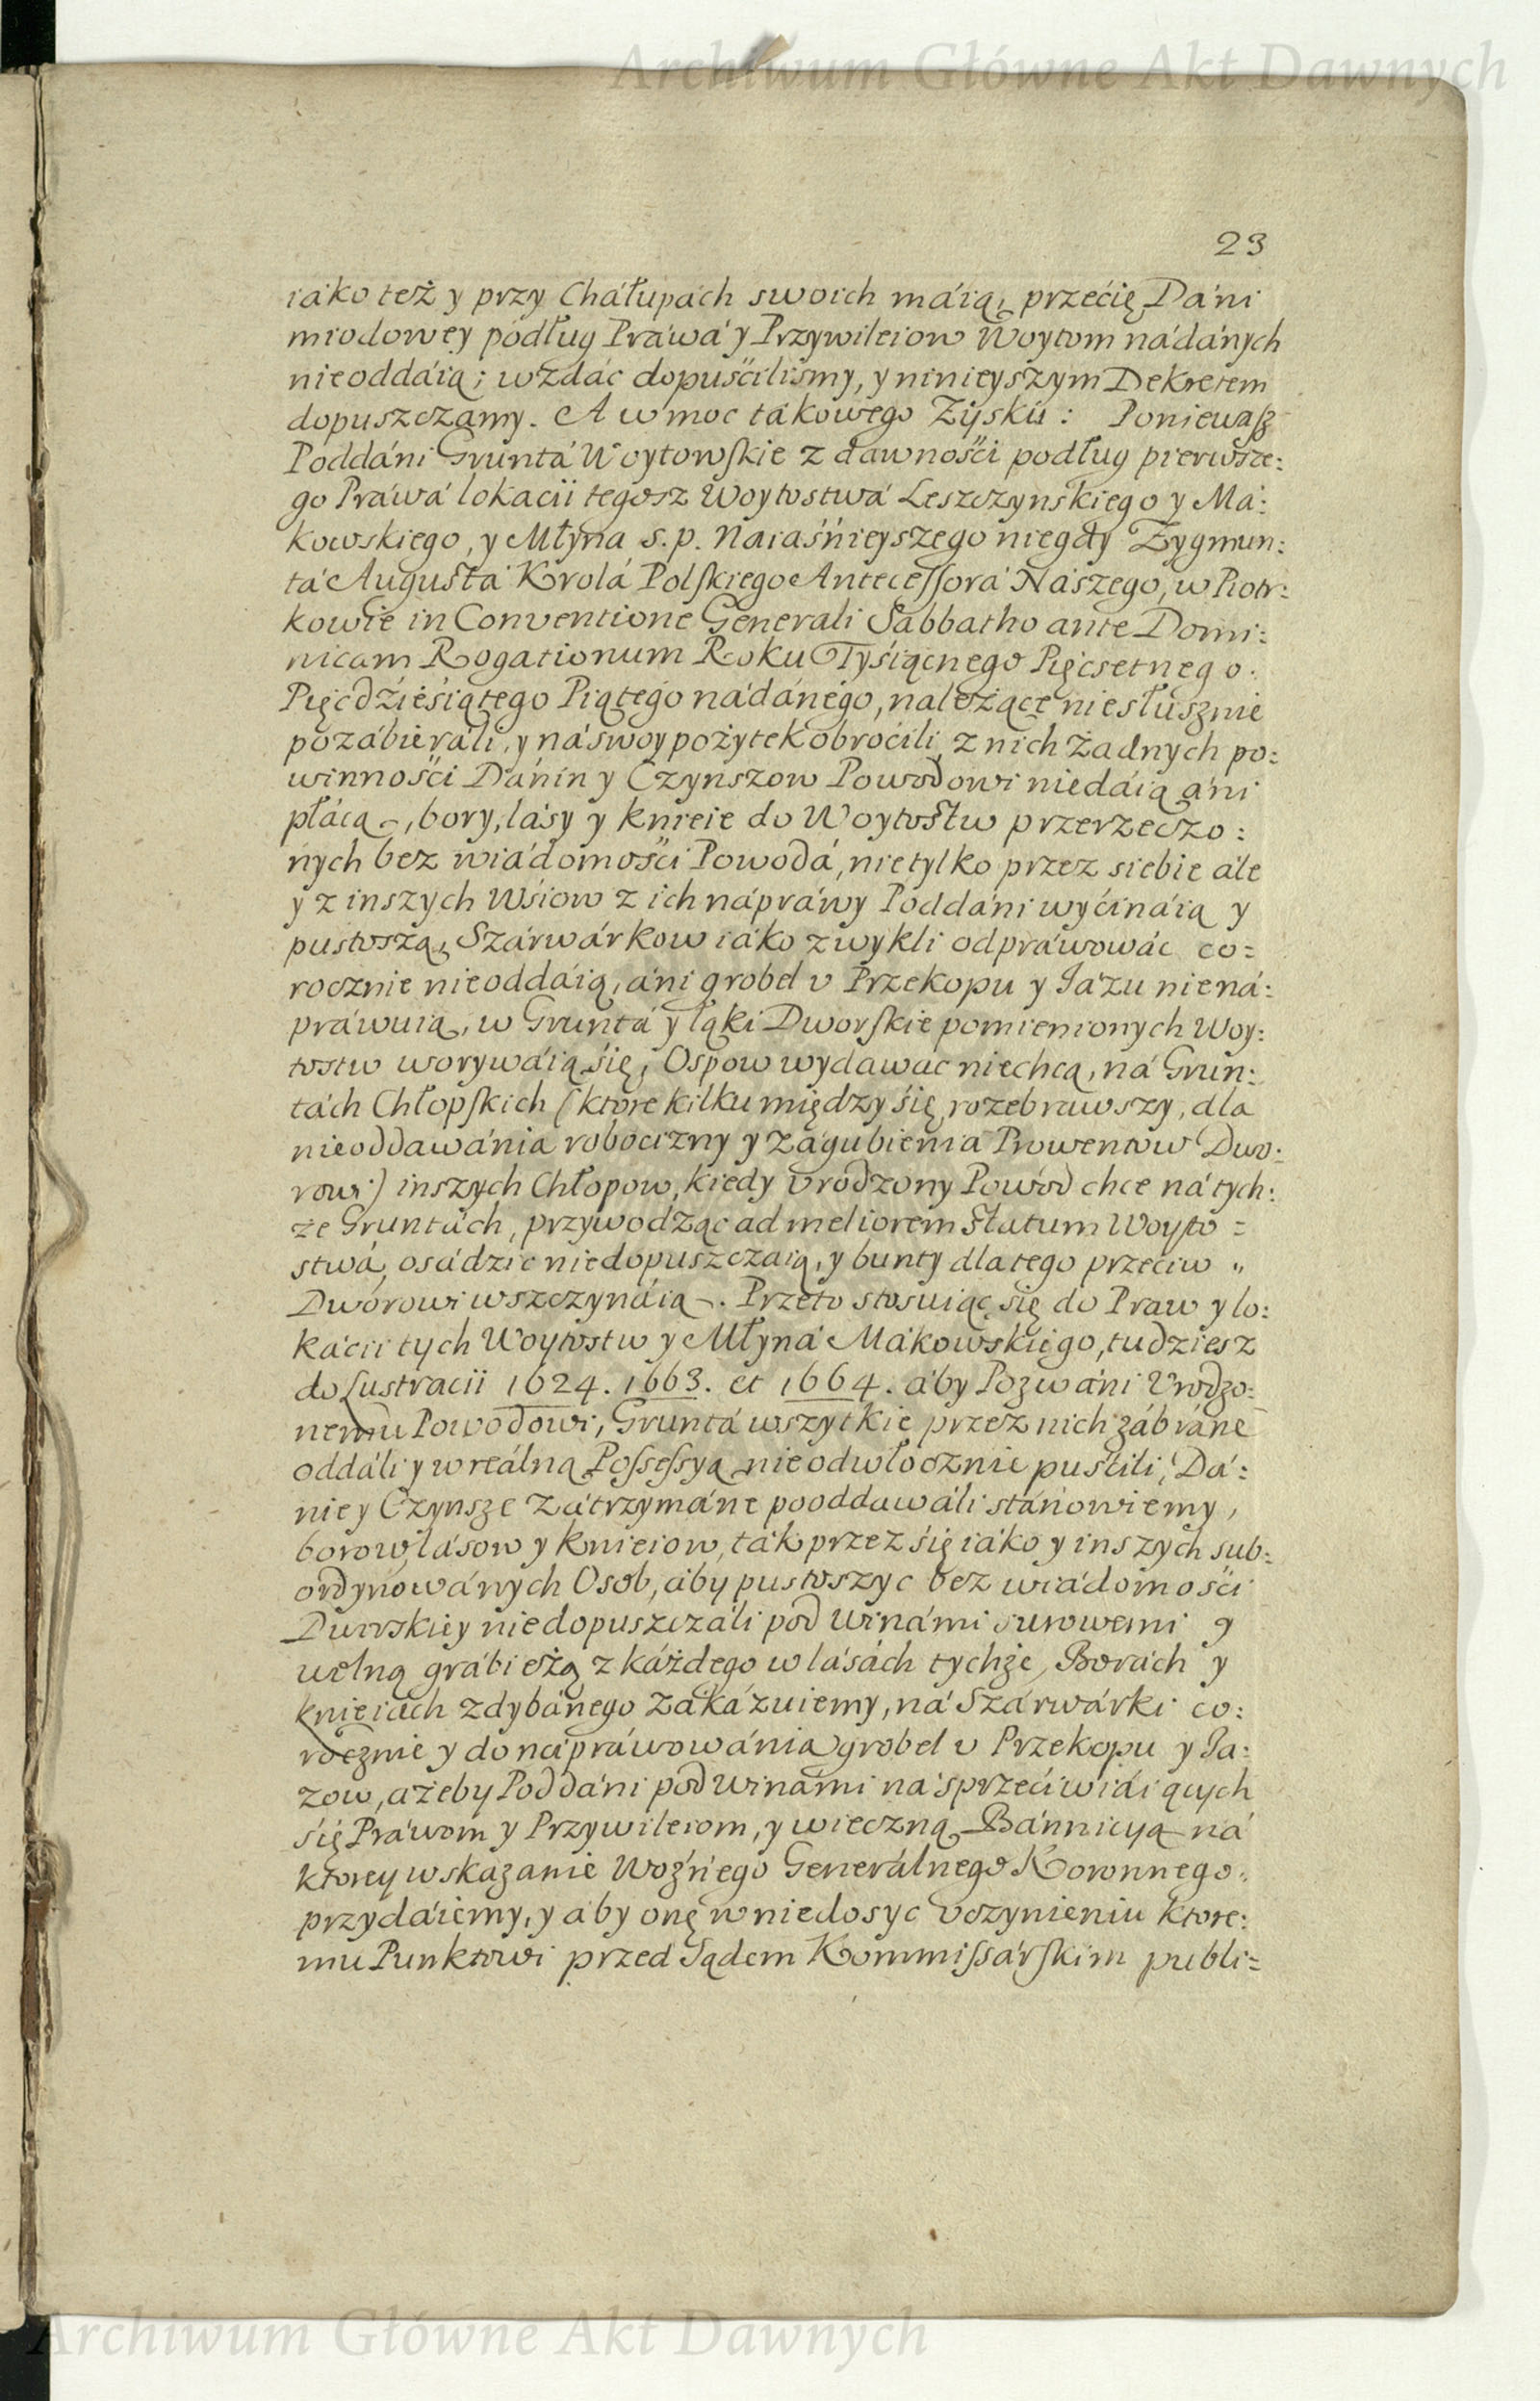 Archiwum Główne Akt Dawnych
23
iáko też y przy Cháłupách swoich máią, przećię Dáni
miodowey podług Práwá y Przywileiow Woytom nádánych
nieoddáią; wzdáć dopuśćiliśmy, y ninieyszym Dekretem
dopuszczamy. A w moc tákowego Zysku: Poniewaſz
Poddáni Gruntá Woytowſkie z dawnośći podług pierwsze:
go Práwá lokacii tegosz Woytostwá Leszczynskiego y Má:
kowskiego, y Młyna s. p. Naiaśnieyszego niegdy Zygmun:
tá Augustá Krolá Polſkiego Anteceſſorá Nászego, w Piotr:
kowie in Conventione Generali Sabbatho ante Domi:
nicam Rogationum Roku Tyśiącnego Pięcsetnego.
Pięćdźieśiątego Piątego nádánego, należące niesłusznie
pozábieráli, y ná swoy pożytek obroćili, z nich żadnych po:
winnośći Dánin y Czynszow Powodowi niedáią áni
płácą, bory, lásy y knieie do Woytostw przerzeczo:
nych bez wiádomośći Powodá, nie tylko przez siebie ále
y z inszych Wśiow z ich nápráwy Poddáni wyćináią y
pustoszą, Szárwárkow iáko zwykli odpráwowác co=
rocznie nieoddáią, áni grobel v Przekopu y Jázu niená:
práwuią, w Gruntá y łąki Dworſkie pomienionych Woy:
tostw worywáią się, Ospow wydawác niechcą, ná Grun:
tách Chłopſkich (ktore kilku między się rozebrawszy, dla
nieoddawánia robocizny y zágubienia Prowentow Dwo:
rowi) inszych Chłopow, kiedy vrodzony Powod chce ná tych:
że Gruntách, przywodząc ad meliorem statum Woyto=
stwá, osádzić niedopuszczaią, y bunty dlatego przeciw "
Dworowi wszczynáią. Przeto stosuiąc się do Praw y lo:
kácii tych Woytostw y Młyná Mákowskiego, tudziesz
do Lustracii 1624. 1663. et 1664. áby Pozwáni Vrodzo:
nemu Powodowi, Gruntá wszytkie przez nich zábráne
oddáli y w reálną Poſseſsyą nieodwłocznie puśćili, Dá:
nie y Czynsze zátrzymáne pooddawáli stánowiemy,
borow, lásow y knieiow, ták przez się iáko y inszych sub:
ordynowánych Osob, áby pustoszyc bez wiádomośći
Dworskiey niedopuszczáli pod winámi surowemi y
wolną grábieżą z káżdego w lásách tychże, Borách y
knieiách zdybánego zakázuiemy, ná Szárwárki co:
rocznie y do nápráwowánia grobel v Przekopu y Já:
zow, ażeby Poddáni pod winámi ná sprzećiwiáiących
się Práwom y Przywileiom, y wieczną Bánnicyą ná
ktorey wskazanie Woźnego Generálnego Koronnego
przydáiemy, y áby onę w niedosyc vczynieniu ktore:
mu Punktowi przed Sądem Kommiſsárſkim publi=
Archiwum Główne Akt Dawnych